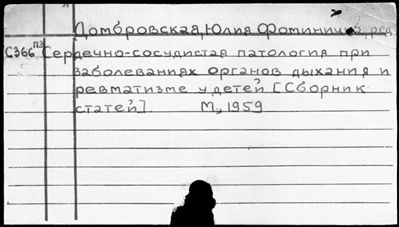 Домбровская, Юлия Фоминична, ред.
С366 ПЗ Сердечно-сосудистая патология при
заболеваниях органов дыхания и
ревматизме у детей [Сборник
статей]. М., 1959